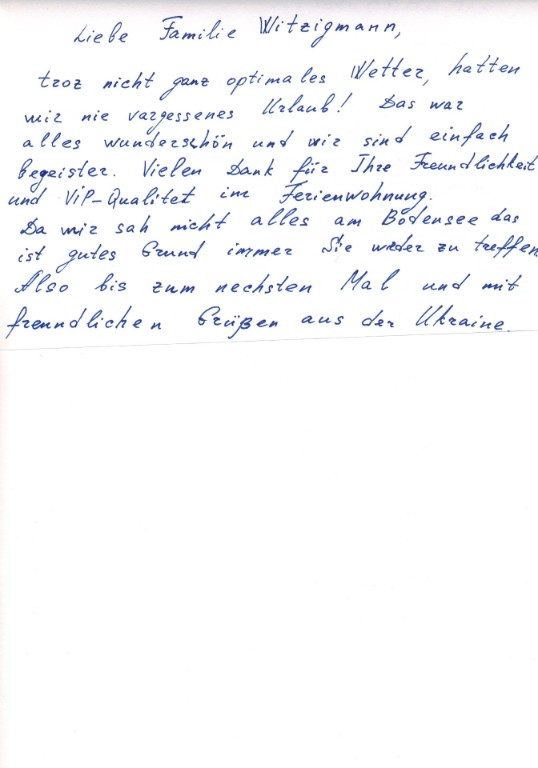 Liebe Familie Witzigmann,
troz nicht ganz optimales Wetter, hatten
wir nie vargessenes Urlaub! Das war
alles wunderschön und wir sind einfach
begeister. Vielen Dank für Ihre Freundlichkeit
und ViP-Qualitet im Ferienwohnung.
Da wir sah nicht alles am Bodensee das
ist gutes Grund immer Sie wieder zu treffen
Also bis zum nechsten Mal und mit
freundlichen Grüßen aus der Ukraine.